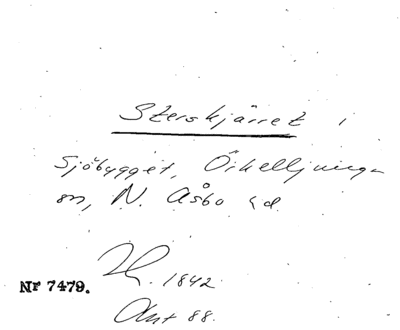 Stenskjärret i
Sjöbygget, Örkelljunga
sn, N. Åsbo hd
1842
Nr 7479.
Akt 88.